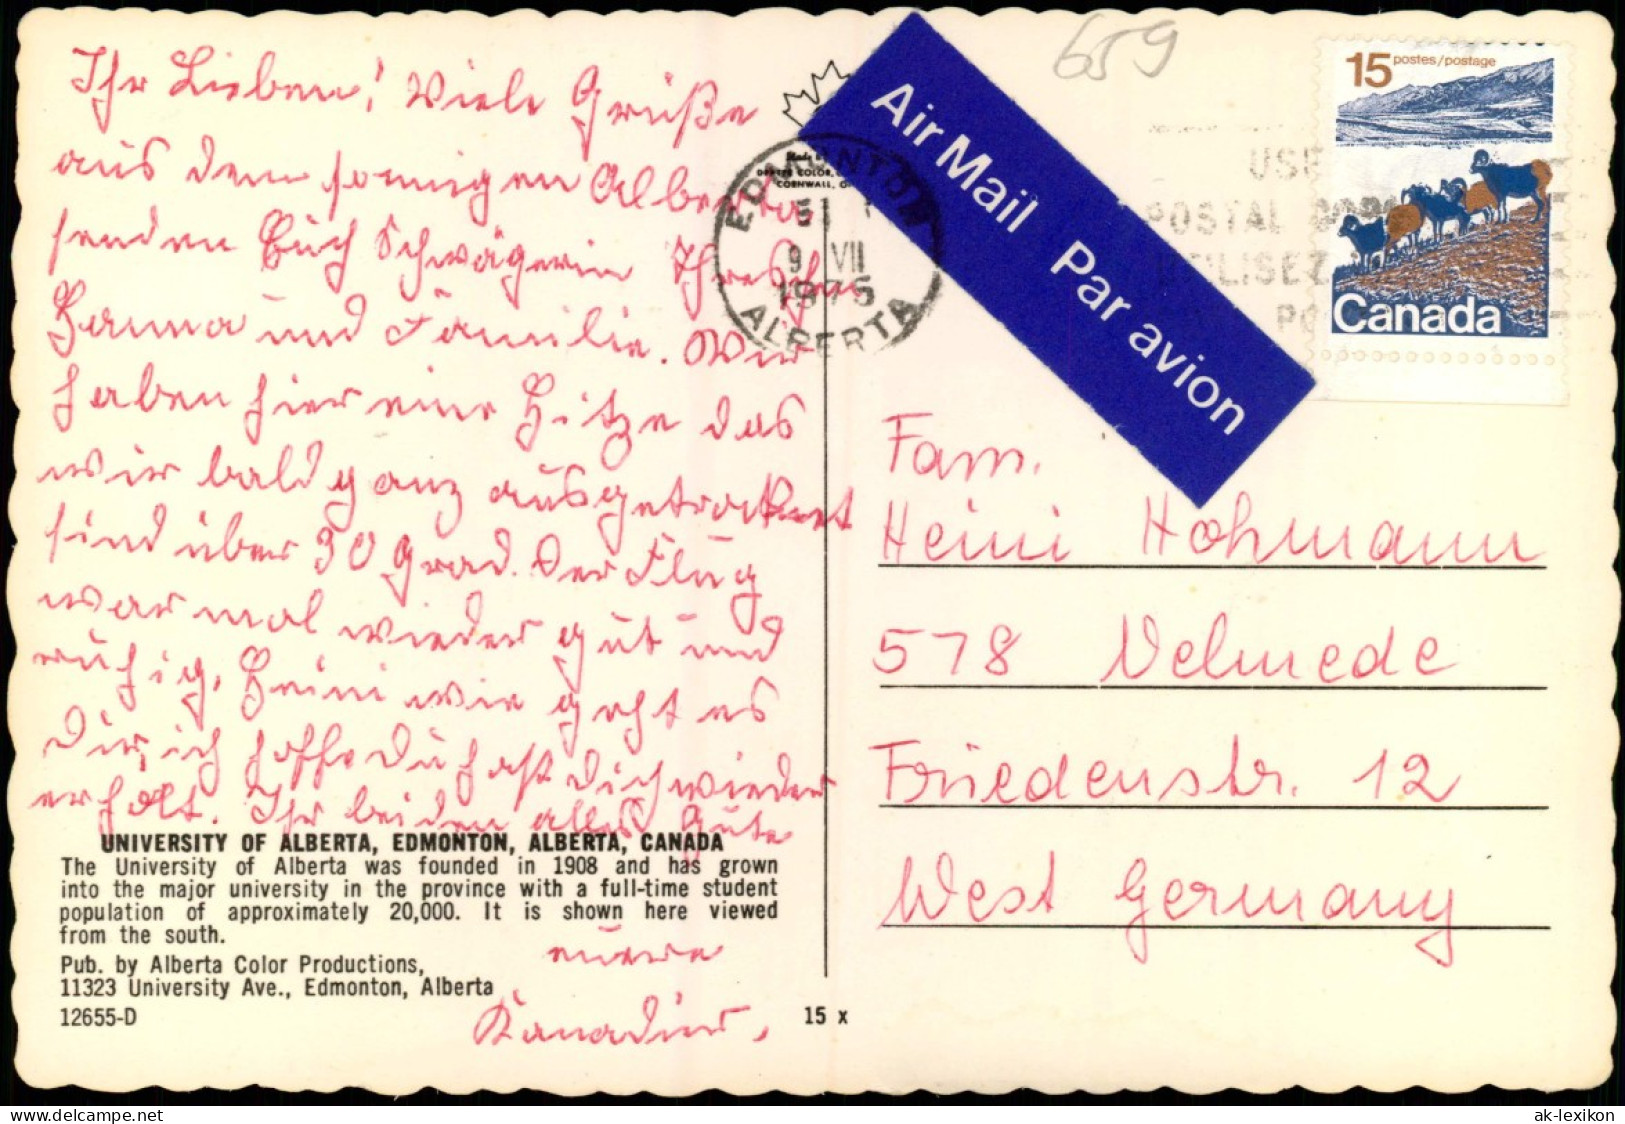 Ihr Lieben! Viele Grüße
aus dem sonnigen Alberta
senden Euch Schwägerin
Herma und Familie. Wir
haben hier eine Hitze das
wir bald ganz ausgetrocknet
sind über 30 Grad. Der Flug
war mal wieder gut und
ruhig. Heini wie geht es
Dir, ich hoffe Du hast Dich wieder
erholt. Ihr beiden alles Gute
eüere
Kanadier.
UNIVERSITY OF ALBERTA, EDMONTON, ALBERTA, CANADA
The University of Alberta was founded in 1908 and has grown
into the major university in the province with a full-time student
population of approximately 20,000. It is shown here viewed
from the south.
Pub. by Alberta Color Productions,
11323 University Ave., Edmonton, Alberta
12655-D
15 x
659
Air Mail Par avion
EDMONTON
9 VII
1975
ALBERTA
CORNWALL,
USE
POSTAL
UTILISEZ
15 postes/postage
Canada
Fam.
Heini Hohmann
578 Velmede
Friedenstr. 12
West Germany
www.delcampe.net
ak-lexikon